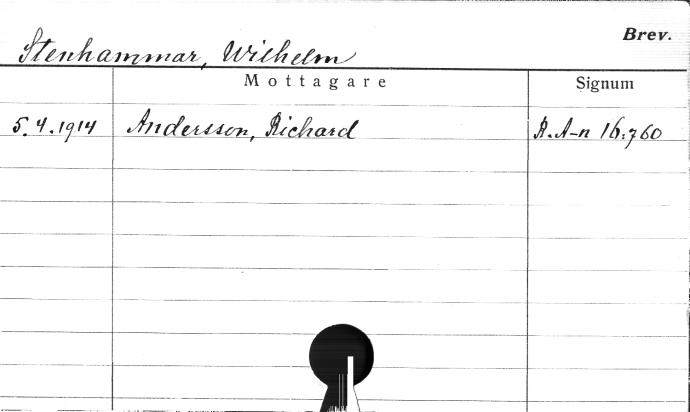 Brev.
Stenhammar, Wilhelm
Mottagare Signum
5.4.1914 Andersson, Richard R.A-n 16:760